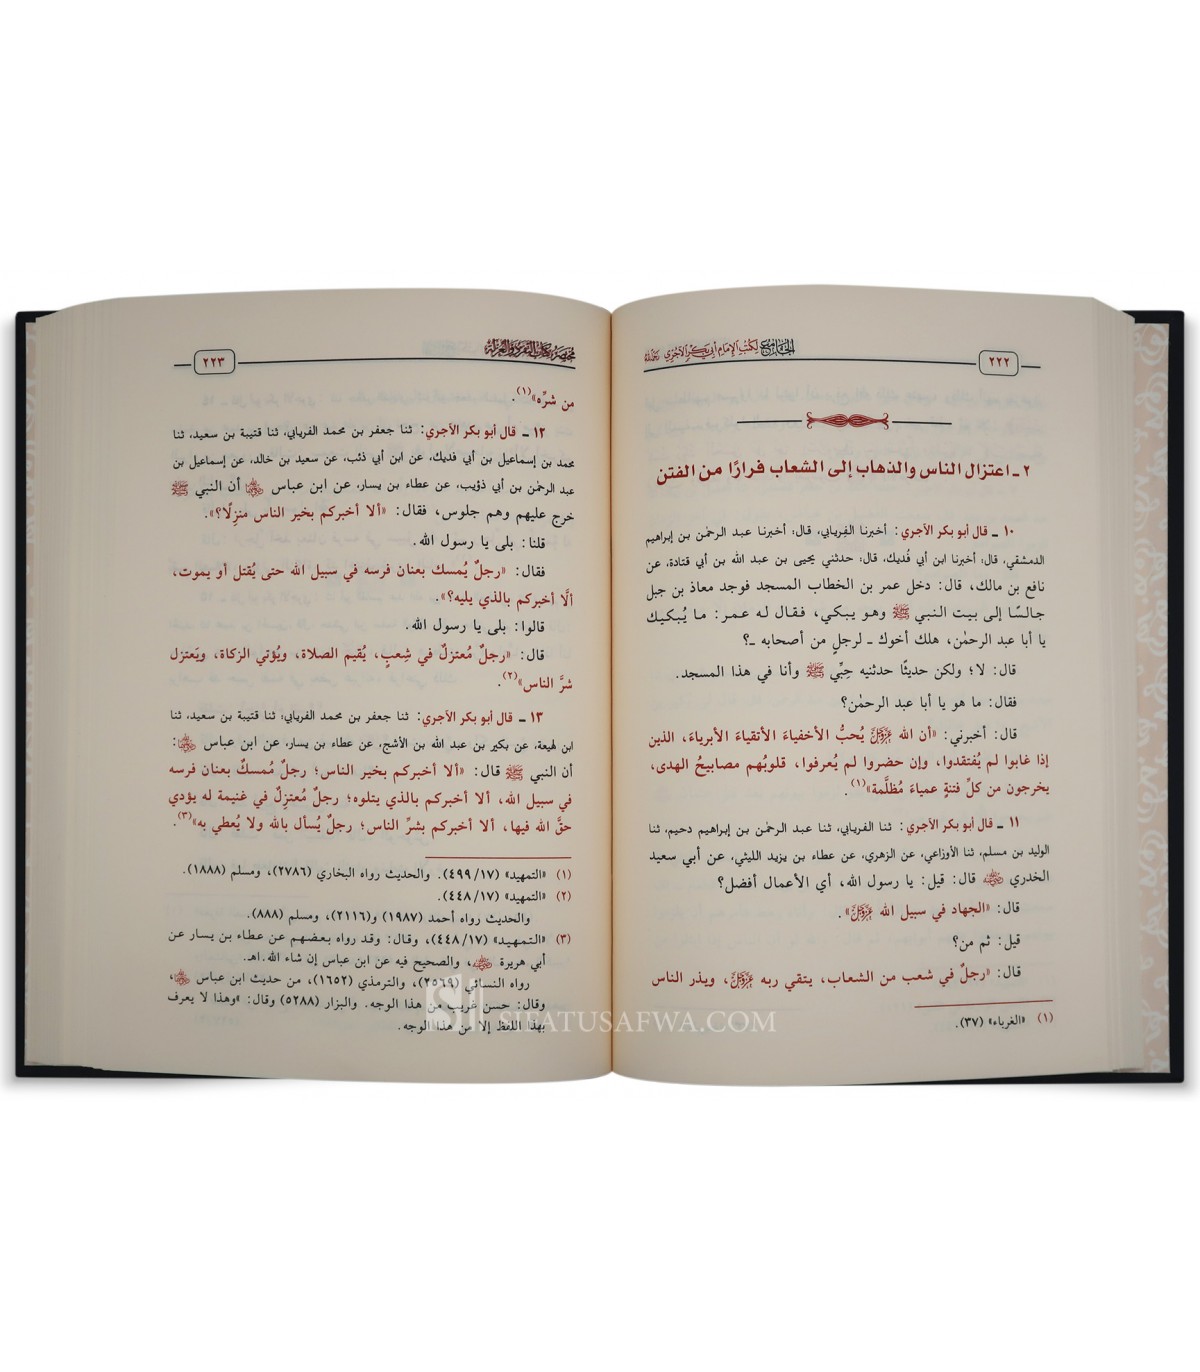 ٢٢٢
الجامع لكتب الإمام أبي بكر الآجري رحمه الله
٢ ـ اعتزال الناس والذهاب إلى الشعاب فرارًا من الفتن
١٠ ـ قال أبو بكر الآجري: أخبرنا الفِريابي، قال: أخبرنا عبد الرحمٰن بن إبراهيم
الدمشقي، قال: أخبرنا ابن أبي فُديك، قال: حدثني يحيى بن عبد الله بن أبي قتادة، عن
نافع بن مالك، قال: دخل عمر بن الخطاب المسجد فوجد معاذ بن جبل
جالسًا إلى بيت النبي ﷺ وهو يبكي، فقال له عمر: ما يُبكيك
يا أبا عبد الرحمٰن، هلك أخوك ـ لرجلٍ من أصحابه ـ؟
قال: لا؛ ولكن حديثًا حدثنيه حِبِّي ﷺ وأنا في هذا المسجد.
فقال: ما هو يا أبا عبد الرحمٰن؟
قال: أخبرني: «أن الله عزوجل يُحبُّ الأخفياءَ الأتقياءَ الأبرياءَ، الذين
إذا غابوا لم يُفتقدوا، وإن حضروا لم يُعرفوا، قلوبُهم مصابيحُ الهدى،
يخرجون من كلِّ فتنةٍ عمياءَ مُظلَّمة»(١).
١١ ـ قال أبو بكر الآجري: ثنا الفريابي، ثنا عبد الرحمٰن بن إبراهيم دحيم، ثنا
الوليد بن مسلم، ثنا الأوزاعي، عن الزهري، عن عطاء بن يزيد الليثي، عن أبي سعيد
الخدري رضي الله عنه قال: قيل: يا رسول الله، أي الأعمال أفضل؟
قال: «الجهاد في سبيل الله عزوجل».
قيل: ثم من؟
قال: «رجلٌ في شعب من الشعاب، يتقي ربه عزوجل، ويذر الناس
(١) «الغرباء» (٣٧).
مختصر كتاب التفرد والعزلة
٢٢٣
من شرِّه»(١).
١٢ ـ قال أبو بكر الآجري: ثنا جعفر بن محمد الفريابي، ثنا قتيبة بن سعيد، ثنا
محمد بن إسماعيل بن أبي فديك، عن ابن أبي ذئب، عن سعيد بن خالد، عن إسماعيل بن
عبد الرحمٰن بن أبي ذؤيب، عن عطاء بن يسار، عن ابن عباس رضي الله عنهما أن النبي ﷺ
خرج عليهم وهم جلوس، فقال: «ألا أخبركم بخير الناس منزلًا؟».
قلنا: بلى يا رسول الله.
فقال: «رجلٌ يُمسك بعنان فرسه في سبيل الله حتى يُقتل أو يموت،
ألَّا أخبركم بالذي يليه؟».
قالوا: بلى يا رسول الله.
قال: «رجلٌ مُعتزلٌ في شِعبٍ، يُقيم الصلاة، ويُؤتي الزكاة، ويَعتزل
شرَّ الناس»(٢).
١٣ ـ قال أبو بكر الآجري: ثنا جعفر بن محمد الفريابي؛ ثنا قتيبة بن سعيد، ثنا
ابن لهيعة، عن بكير بن عبد الله بن الأشج، عن عطاء بن يسار، عن ابن عباس رضي الله عنهما:
أن النبي ﷺ قال: «ألا أخبركم بخير الناس؛ رجلٌ مُمسكٌ بعنان فرسه
في سبيل الله، ألا أخبركم بالذي يتلوه؛ رجلٌ مُعتزِلٌ في غنيمة له يؤدي
حقَّ الله فيها، ألا أخبركم بشرِّ الناس؛ رجلٌ يُسأل بالله ولا يُعطي به»(٣).
(١) «التمهيد» (٤٩٩/١٧). والحديث رواه البخاري (٢٧٨٦)، ومسلم (١٨٨٨).
(٢) «التمهيد» (٤٤٨/١٧).
والحديث رواه أحمد (١٩٨٧) و(٢١١٦)، ومسلم (٨٨٨).
(٣) «التمهيد» (٤٤٨/١٧)، وقال: وقد رواه بعضهم عن عطاء بن يسار عن
أبي هريرة رضي الله عنه، والصحيح فيه عن ابن عباس إن شاء الله.اهـ.
رواه النسائي (٢٥٦٩)، والترمذي (١٦٥٢)، من حديث ابن عباس رضي الله عنهما،
وقال: حسن غريب من هذا الوجه. والبزار (٥٢٨٨) وقال: «وهذا لا يعرف
بهذا اللفظ إلا من هذا الوجه.
SIFATUSAFWA.COM